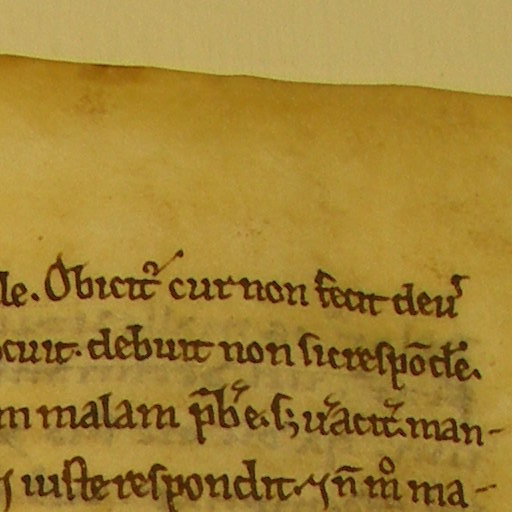 le. Obicit᷑ cur non fecit deuˢ
ocuit. debuit non sic respōde᷑.
m malam p̄b᷑e. sꝫ u᷑acit᷑. man-
iuste respondit. ⁊ n̄ mͦ ma-